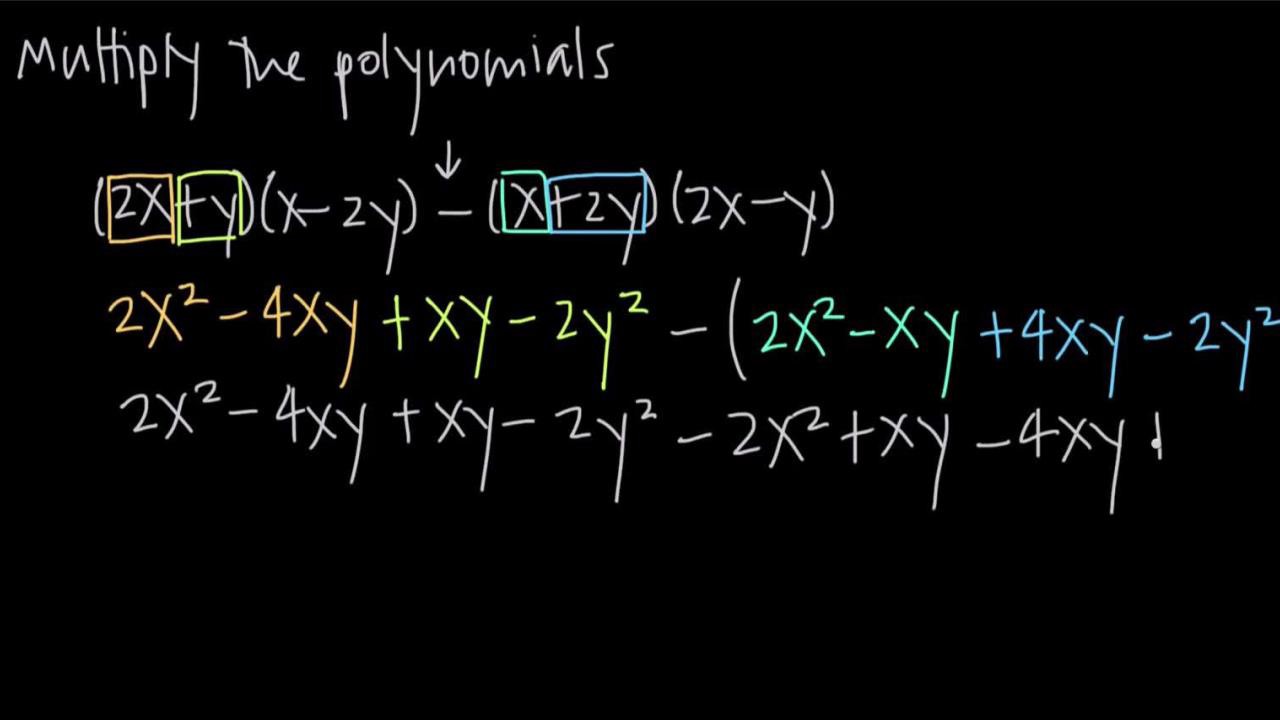 Multiply the polynomials
↓
(2x+y)(x-2y) - (x+2y)(2x-y)
2x² - 4xy + xy - 2y² - (2x² - xy + 4xy - 2y²
2x² - 4xy + xy - 2y² - 2x² + xy - 4xy +